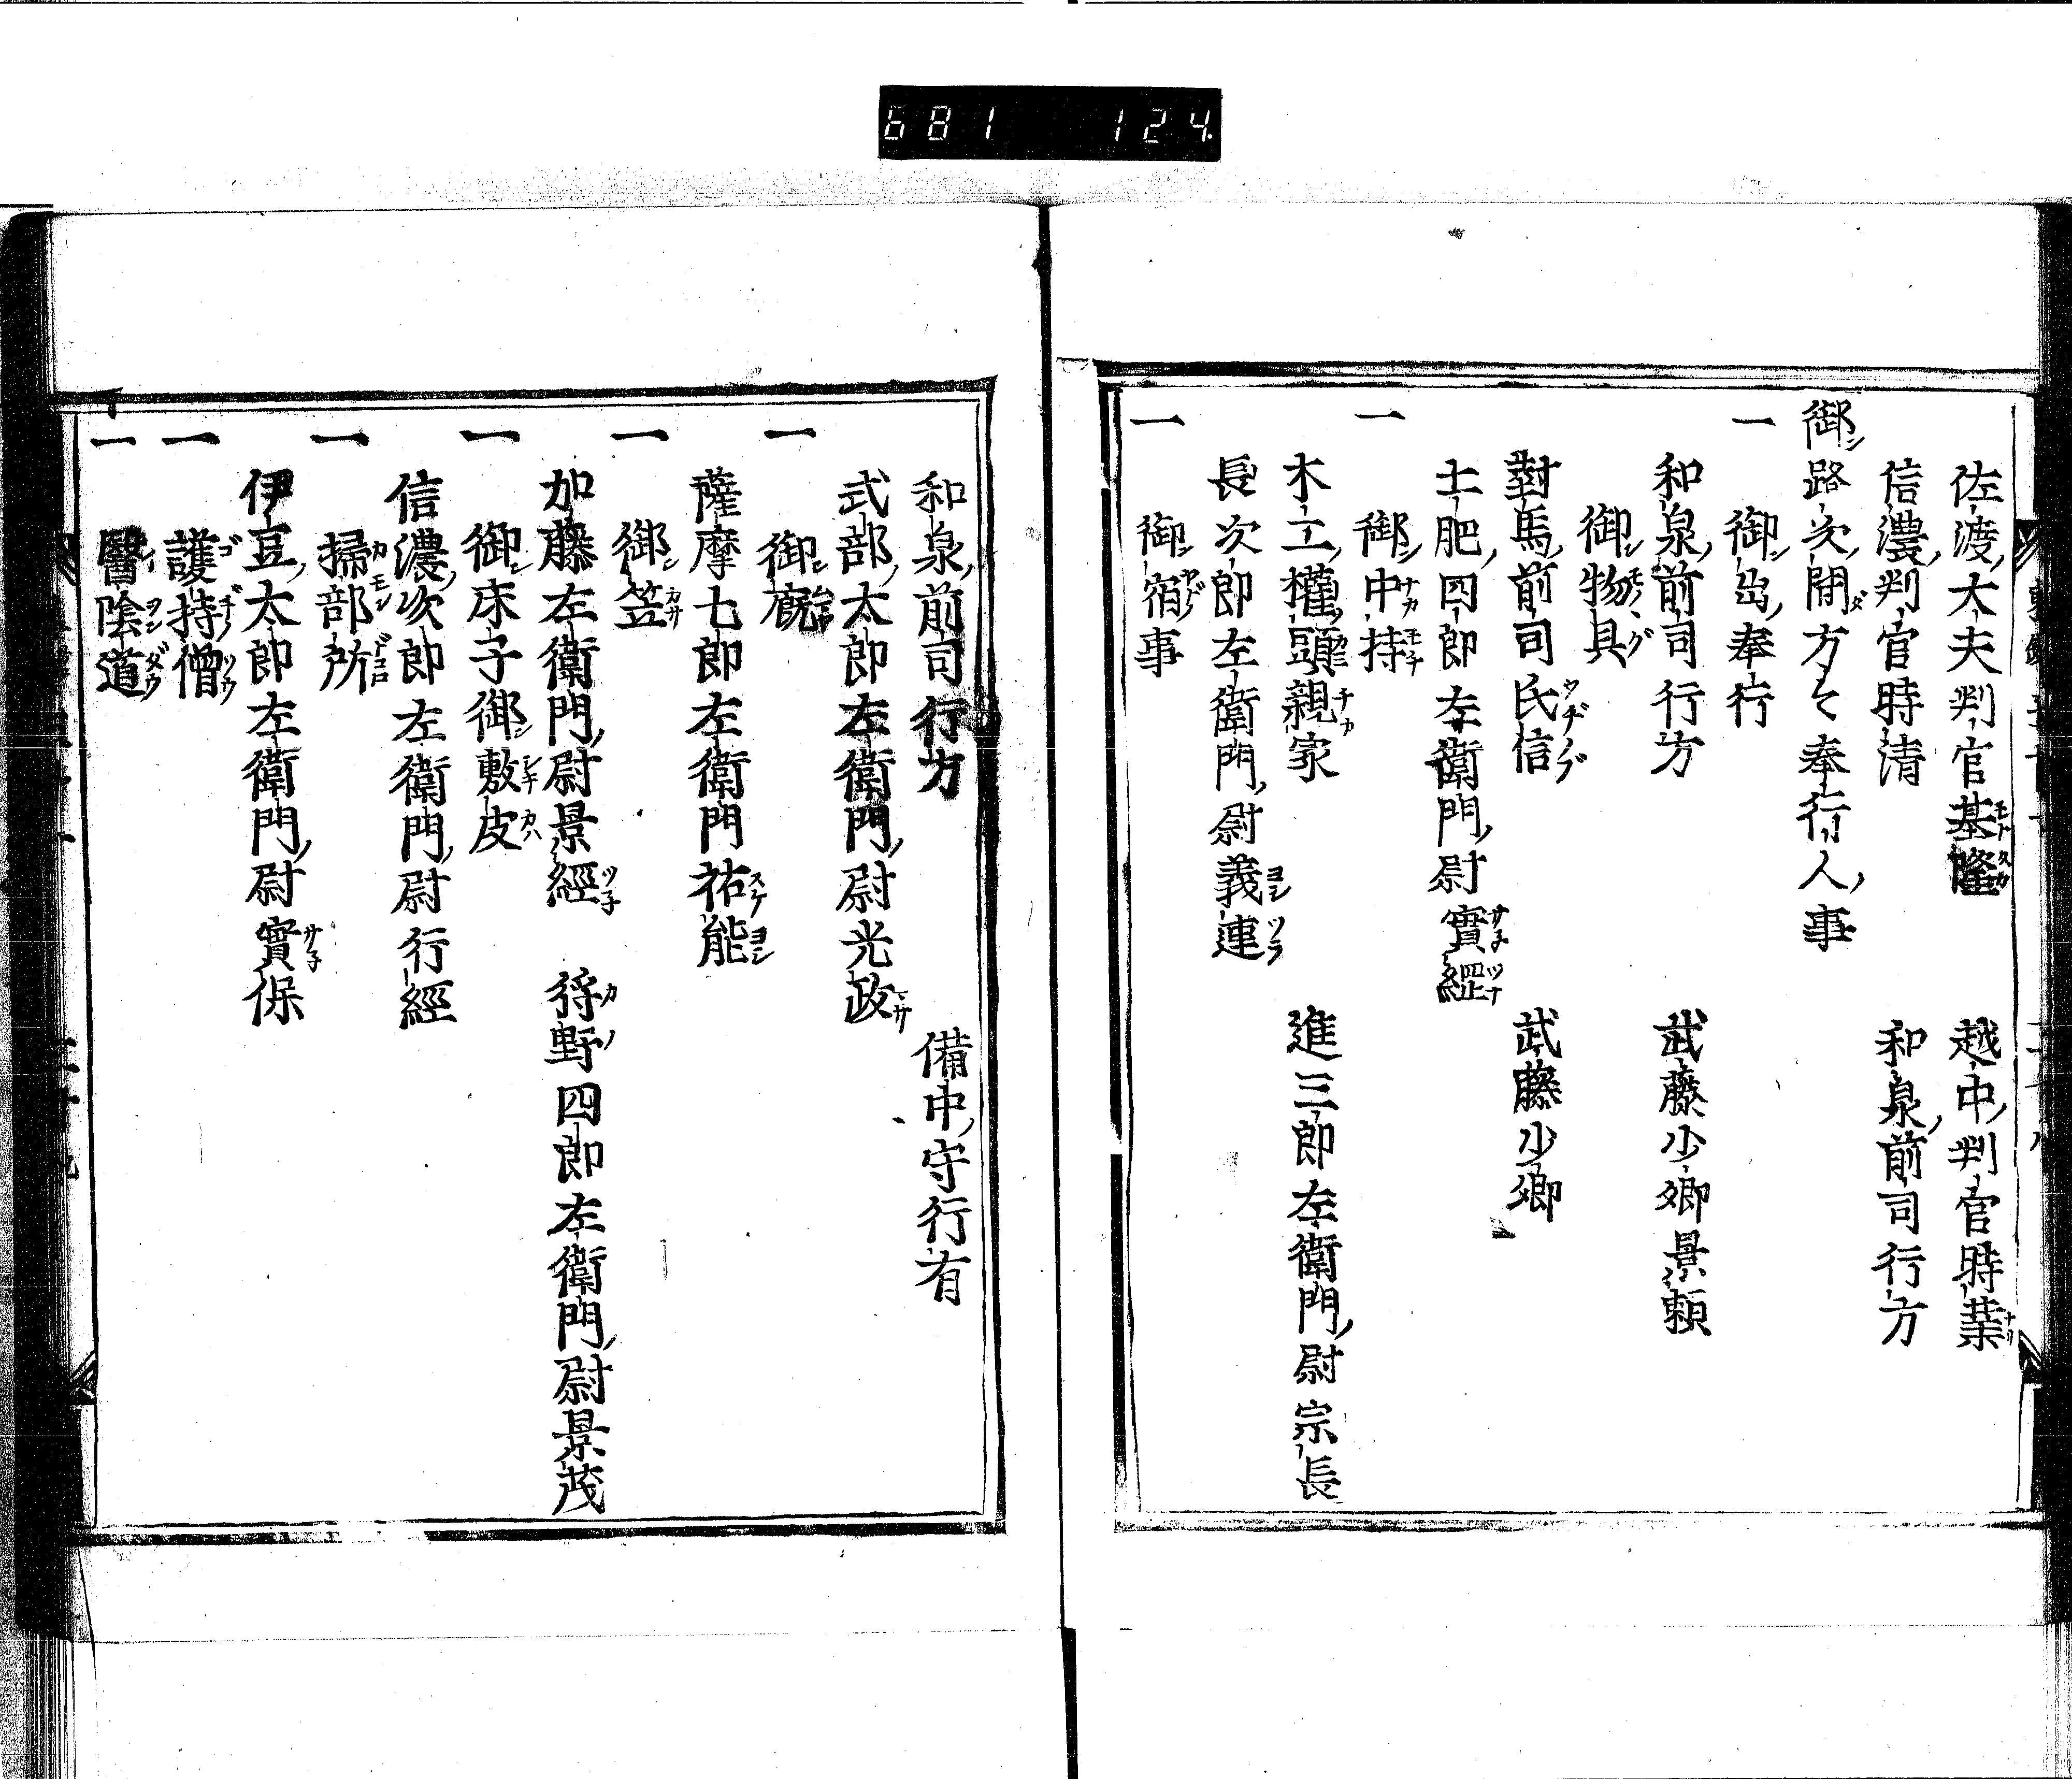 681 124
佐渡太夫判官基隆 越中判官時業
信濃判官時清 和泉前司行方
御路次間方々奉行人事
一 御出奉行
和泉前司行方 武藤少卿景頼
御物具
對馬前司氏信 武藤少卿
土肥四郎左衛門尉實經
一 御中持
木工權頭親家 進三郎左衛門尉宗長
長次郎左衛門尉義連
一 御宿事
和泉前司行方 備中守行有
式部太郎左衛門尉光政
一 御厩
薩摩七郎左衛門祐能
一 御笠
加藤左衛門尉景經 狩野四郎左衛門尉景茂
一 御床子御敷皮
信濃次郎左衛門尉行經
一 掃部所
伊豆太郎左衛門尉實保
一 護持僧
一 醫陰道